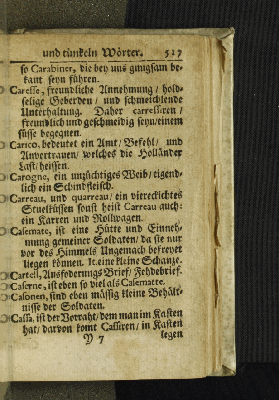 und tunckeln Wörter. 517
so Carabiner, die bey uns gnugsam be-
kant seyn führen.
Caresse, freundliche Annehmung / hold-
selige Geberden / und schmeichlende
Unterhaltung. Daher carressiren /
freundlich und geschmeidig seyn / einem
süsse begegnen.
Carico, bedeutet ein Amt / Befehl / und
Anvertrauen / welches die Holländer
Last / heissen.
Carogne, ein unzüchtiges Weib / eigend-
lich ein Schindfleisch.
Carreau, und quarreau / ein viereckichtes
Stuelküssen sonst heist Carreau auch:
ein Karren und Rollwagen.
Casemate, ist eine Hütte und Einneh-
mung gemeiner Soldaten / da sie nur
vor des Himmels Ungemach befreyet
liegen können. It. eine kleine Schantze.
Cartell, Ausfoderungs Brief / Fehdebrief.
Caserne, ist eben so viel als Casematte.
Casonen, sind eben mässig kleine Behält-
nisse der Soldaten.
Cassa, ist der Vorraht / dem man im Kasten
hat / darvon komt Cassiren / in Kasten
Y 7 legen